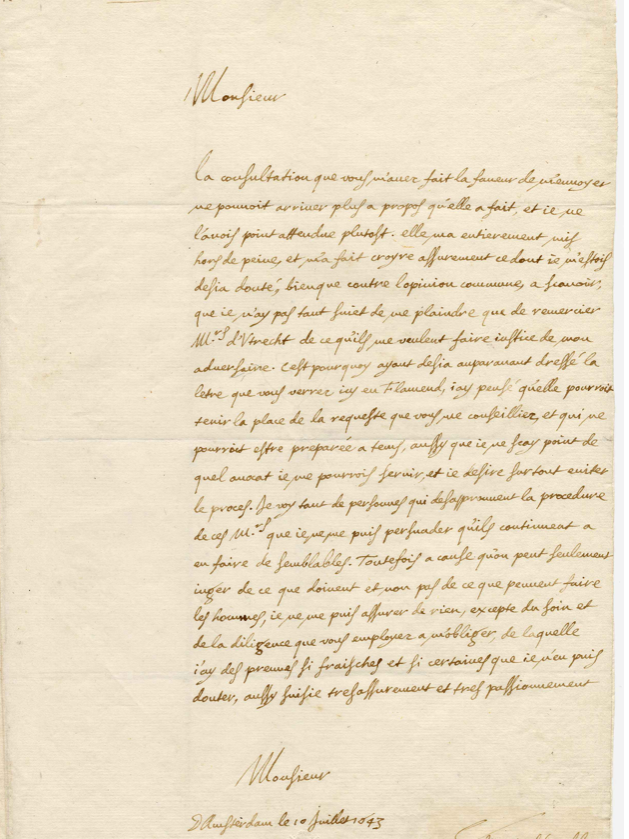 Monsieur
La consultation que vous m'auez fait la faueur de m'enuoyer
ne pouuoit arriuer plus a propos qu'elle a fait, et ie ne
l'auois point attendue plutost. elle m'a entierement mis
hors de peine, et m'a fait croyre assurement ce dont ie m'estois
desia douté, bienque contre l'opinion commune, a scauoir,
que ie n'ay pas tant suiet de me plaindre que de remercier
M.rs d'Vtrecht de ce qu'ils me veulent faire iustice de mon
aduersaire. C'est pourquoy ayant desia auparauant dressé la
letre que vous verrez icy en Flamend, i'ay pensé qu'elle pourroit
tenir la place de la requeste que vous me conseilliez, et qui ne
pourroit estre preparée a tems, aussy que ie ne scay point de
quel auocat ie me pourrois seruir, et ie desire surtout euiter
le proces. Ie voy tant de personnes qui desapprouuent la procedure
de ces M.rs que ie ne me puis persuader qu'ils continuent a
en faire de semblables. Toutefois a cause qu'on peut seulement
iuger de ce que doiuent et non pas de ce que peuuent faire
les hommes, ie ne me puis assurer de rien, excepte du soin et
de la diligence que vous employez a m'obliger, de laquelle
i'ay des preuues si fraisches et si certaines que ie n'en puis
douter, aussy suisie tresassurement et tres passionnement
Monsieur
D'Amsterdam le 10 Juillet 1643